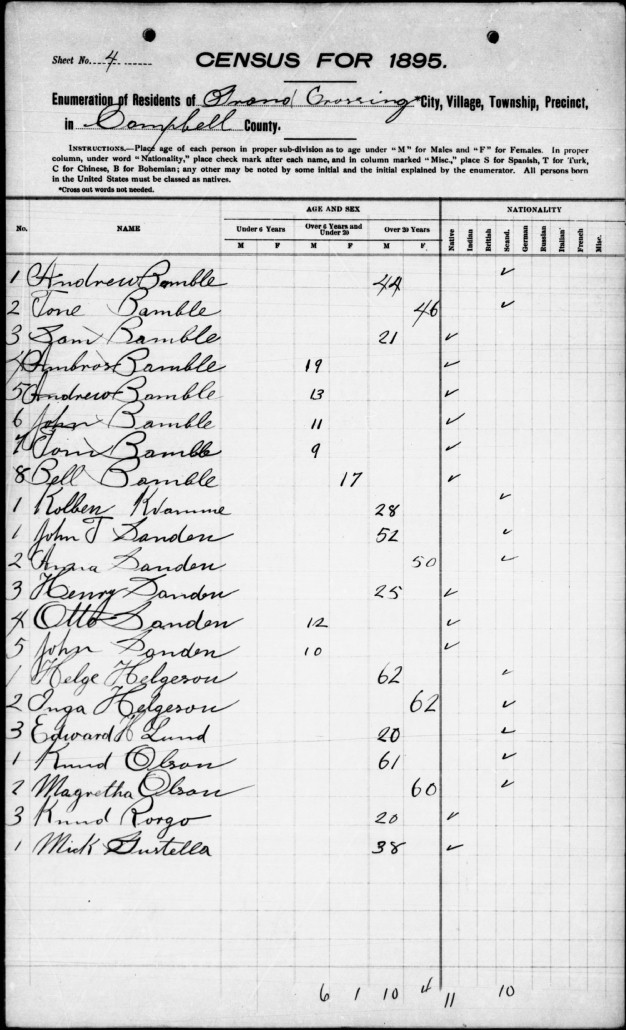 Sheet No. 4
CENSUS FOR 1895.
Enumeration of Residents of Grand Crossing *City, Village, Township, Precinct,
in Campbell County.
INSTRUCTIONS.—Place age of each person in proper sub-division as to age under "M" for Males and "F" for Females. In proper
column, under word "Nationality," place check mark after each name, and in column marked "Misc.," place S for Spanish, T for Turk,
C for Chinese, B for Bohemian; any other may be noted by some initial and the initial explained by the enumerator. All persons born
in the United States must be classed as natives.
*Cross out words not needed.
AGE AND SEX NATIONALITY
No. NAME Under 6 Years Over 6 Years and Under 20 Over 20 Years Native Indian British Scand. German Russian Italian French Misc.
M F M F M F
1 Andrew Bamble 44 ✓
2 Tone Bamble 46 ✓
3 Sam Bamble 21 ✓
4 Ambros Bamble 19 ✓
5 Andrew Bamble 13 ✓
6 John Bamble 11 ✓
7 Tom Bamble 9 ✓
8 Bell Bamble 17 ✓
1 Kolben Kvamme 28 ✓
1 John T Sanden 52 ✓
2 Anna Sanden 50 ✓
3 Henry Sanden 25 ✓
4 Otto Sanden 12 ✓
5 John Sanden 10 ✓
1 Helge Helgeson 62 ✓
2 Inga Helgeson 62 ✓
3 Edward H Lund 20 ✓
1 Knud Olson 61 ✓
2 Magretha Olson 60 ✓
3 Knud Rorgo 20 ✓
1 Mick Gustella 38 ✓
6 1 10 4 11 10